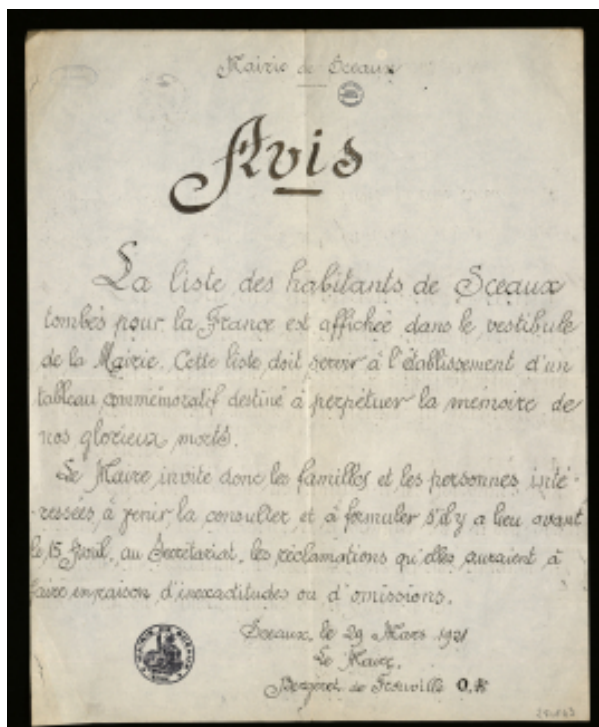 Mairie de Sceaux
Avis
La liste des habitants de Sceaux
tombés pour la France est affichée dans le vestibule
de la Mairie. Cette liste doit servir à l'établissement d'un
tableau commémoratif destiné à perpétuer la mémoire de
nos glorieux morts.
Le Maire invite donc les familles et les personnes inté-
-ressées à venir la consulter et à formuler s'il y a lieu avant
le 15 Avril, au Secrétariat, les réclamations qu'elles auraient à
faire en raison d'inexactitudes ou d'omissions.
Sceaux, le 29 Mars 1921
Le Maire,
de